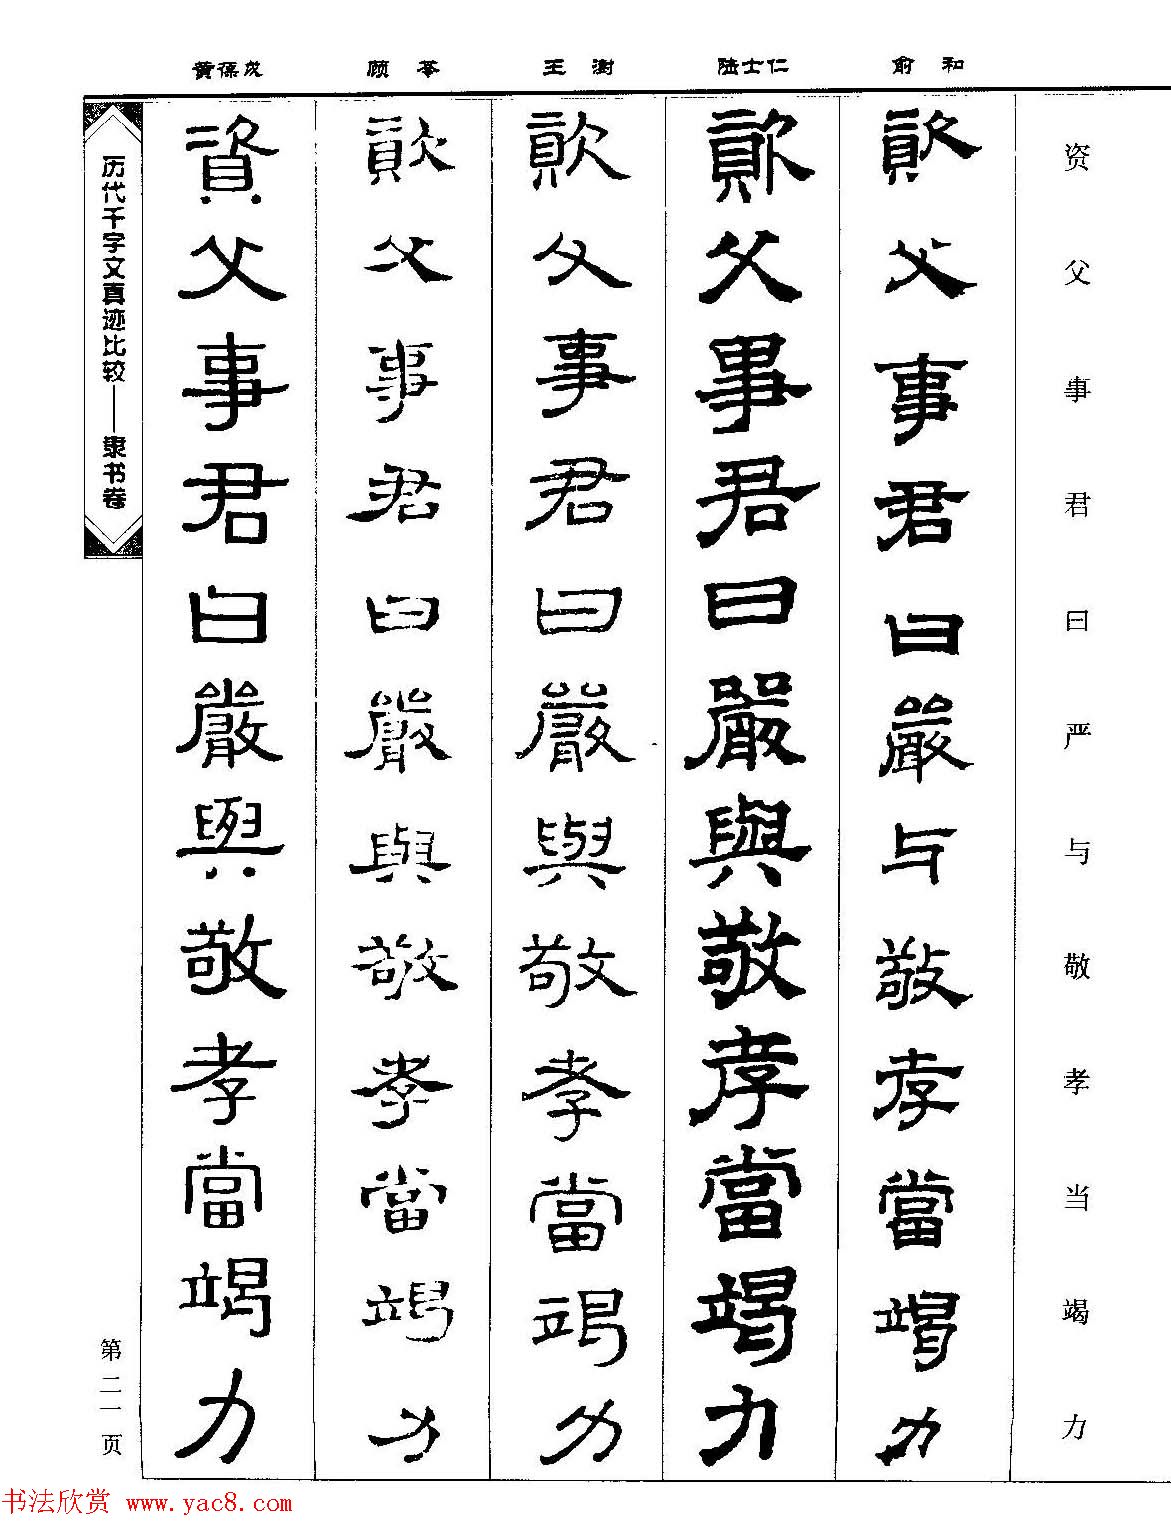 资父事君曰严与敬孝当竭力
俞和
資父事君曰嚴与敬孝當竭力
陆士仁
資父事君曰嚴與敬孝當竭力
王澍
資父事君曰嚴與敬孝當竭力
顾苓
資父事君曰嚴與敬孝當竭力
黄葆戉
資父事君曰嚴與敬孝當竭力
历代千字文真迹比较——隶书卷
第二一页
书法欣赏 www.yac8.com